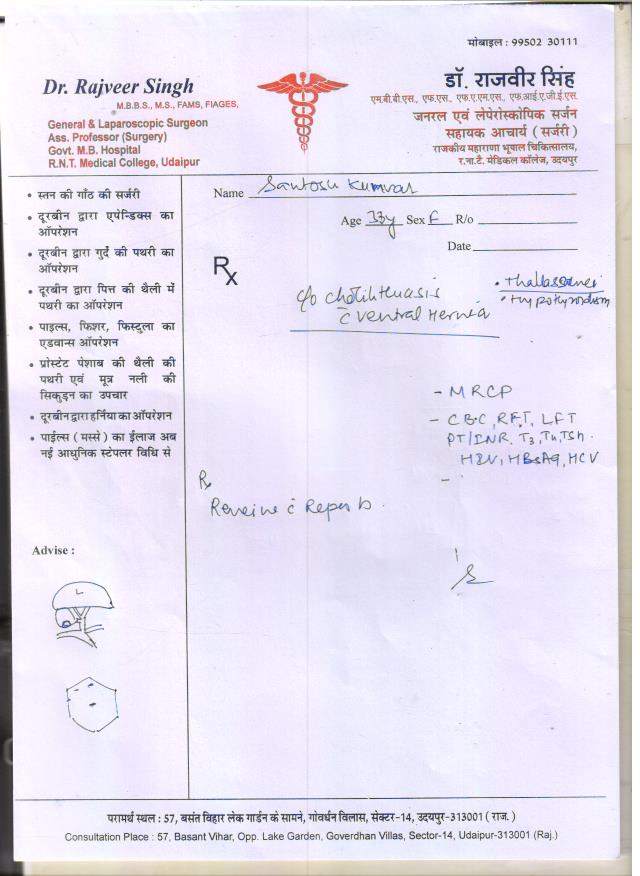 मोबाइल : 99502 30111
Dr. Rajveer Singh
M.B.B.S., M.S., FAMS, FIAGES,
General & Laparoscopic Surgeon
Ass. Professor (Surgery)
Govt. M.B. Hospital
R.N.T. Medical College, Udaipur
डॉ. राजवीर सिंह
एम.बी.बी.एस., एफ.एस., एफ.ए.एम.एस., एफ.आई.ए.जी.ई.एस.
जनरल एवं लेपेरोस्कोपिक सर्जन
सहायक आचार्य ( सर्जरी )
राजकीय महाराणा भूपाल चिकित्सालय,
र.ना.टै. मेडिकल कॉलेज, उदयपुर
• स्तन की गाँठ की सर्जरी
• दूरबीन द्वारा एपेन्डिक्स का
ऑपरेशन
• दूरबीन द्वारा गुर्दे की पथरी का
ऑपरेशन
• दूरबीन द्वारा पित्त की थैली में
पथरी का ऑपरेशन
• पाइल्स, फिशर, फिस्टुला का
एडवान्स ऑपरेशन
• प्रोस्टेट पेशाब की थैली की
पथरी एवं मूत्र नली की
सिकुड़न का उपचार
• दूरबीन द्वारा हर्निया का ऑपरेशन
• पाईल्स ( मस्से ) का ईलाज अब
नई आधुनिक स्टेपलर विधि से
Advise :
Name Santosh Kumwar
Age 33y Sex F R/o
Date
Rx
c/o
c Ventral Hernia
- MRCP
- CBC, RFT, LFT
PT/INR, T3, T4, TSH.
HIV, HBsAg, HCV
Rx
L
परामर्श स्थल : 57, बसंत विहार लेक गार्डन के सामने, गोवर्धन विलास, सेक्टर-14, उदयपुर-313001 ( राज. )
Consultation Place : 57, Basant Vihar, Opp. Lake Garden, Goverdhan Villas, Sector-14, Udaipur-313001 (Raj.)